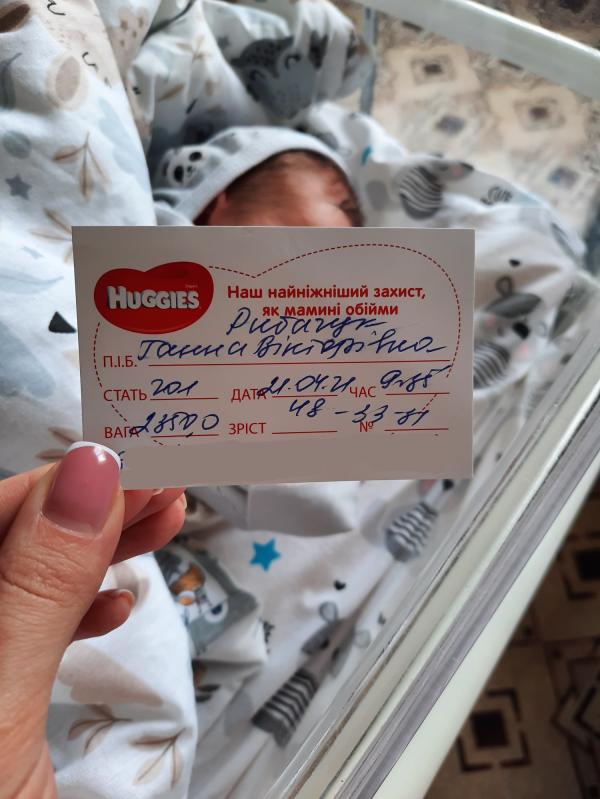 HUGGIES
Наш найніжніший захист,
як мамині обійми
Рибачук
П.І.Б. Ганна Вікторівна
СТАТЬ чол ДАТА 21.04.21 ЧАС 9
ВАГА 2850,0 ЗРІСТ 48 - 33 - 31 №